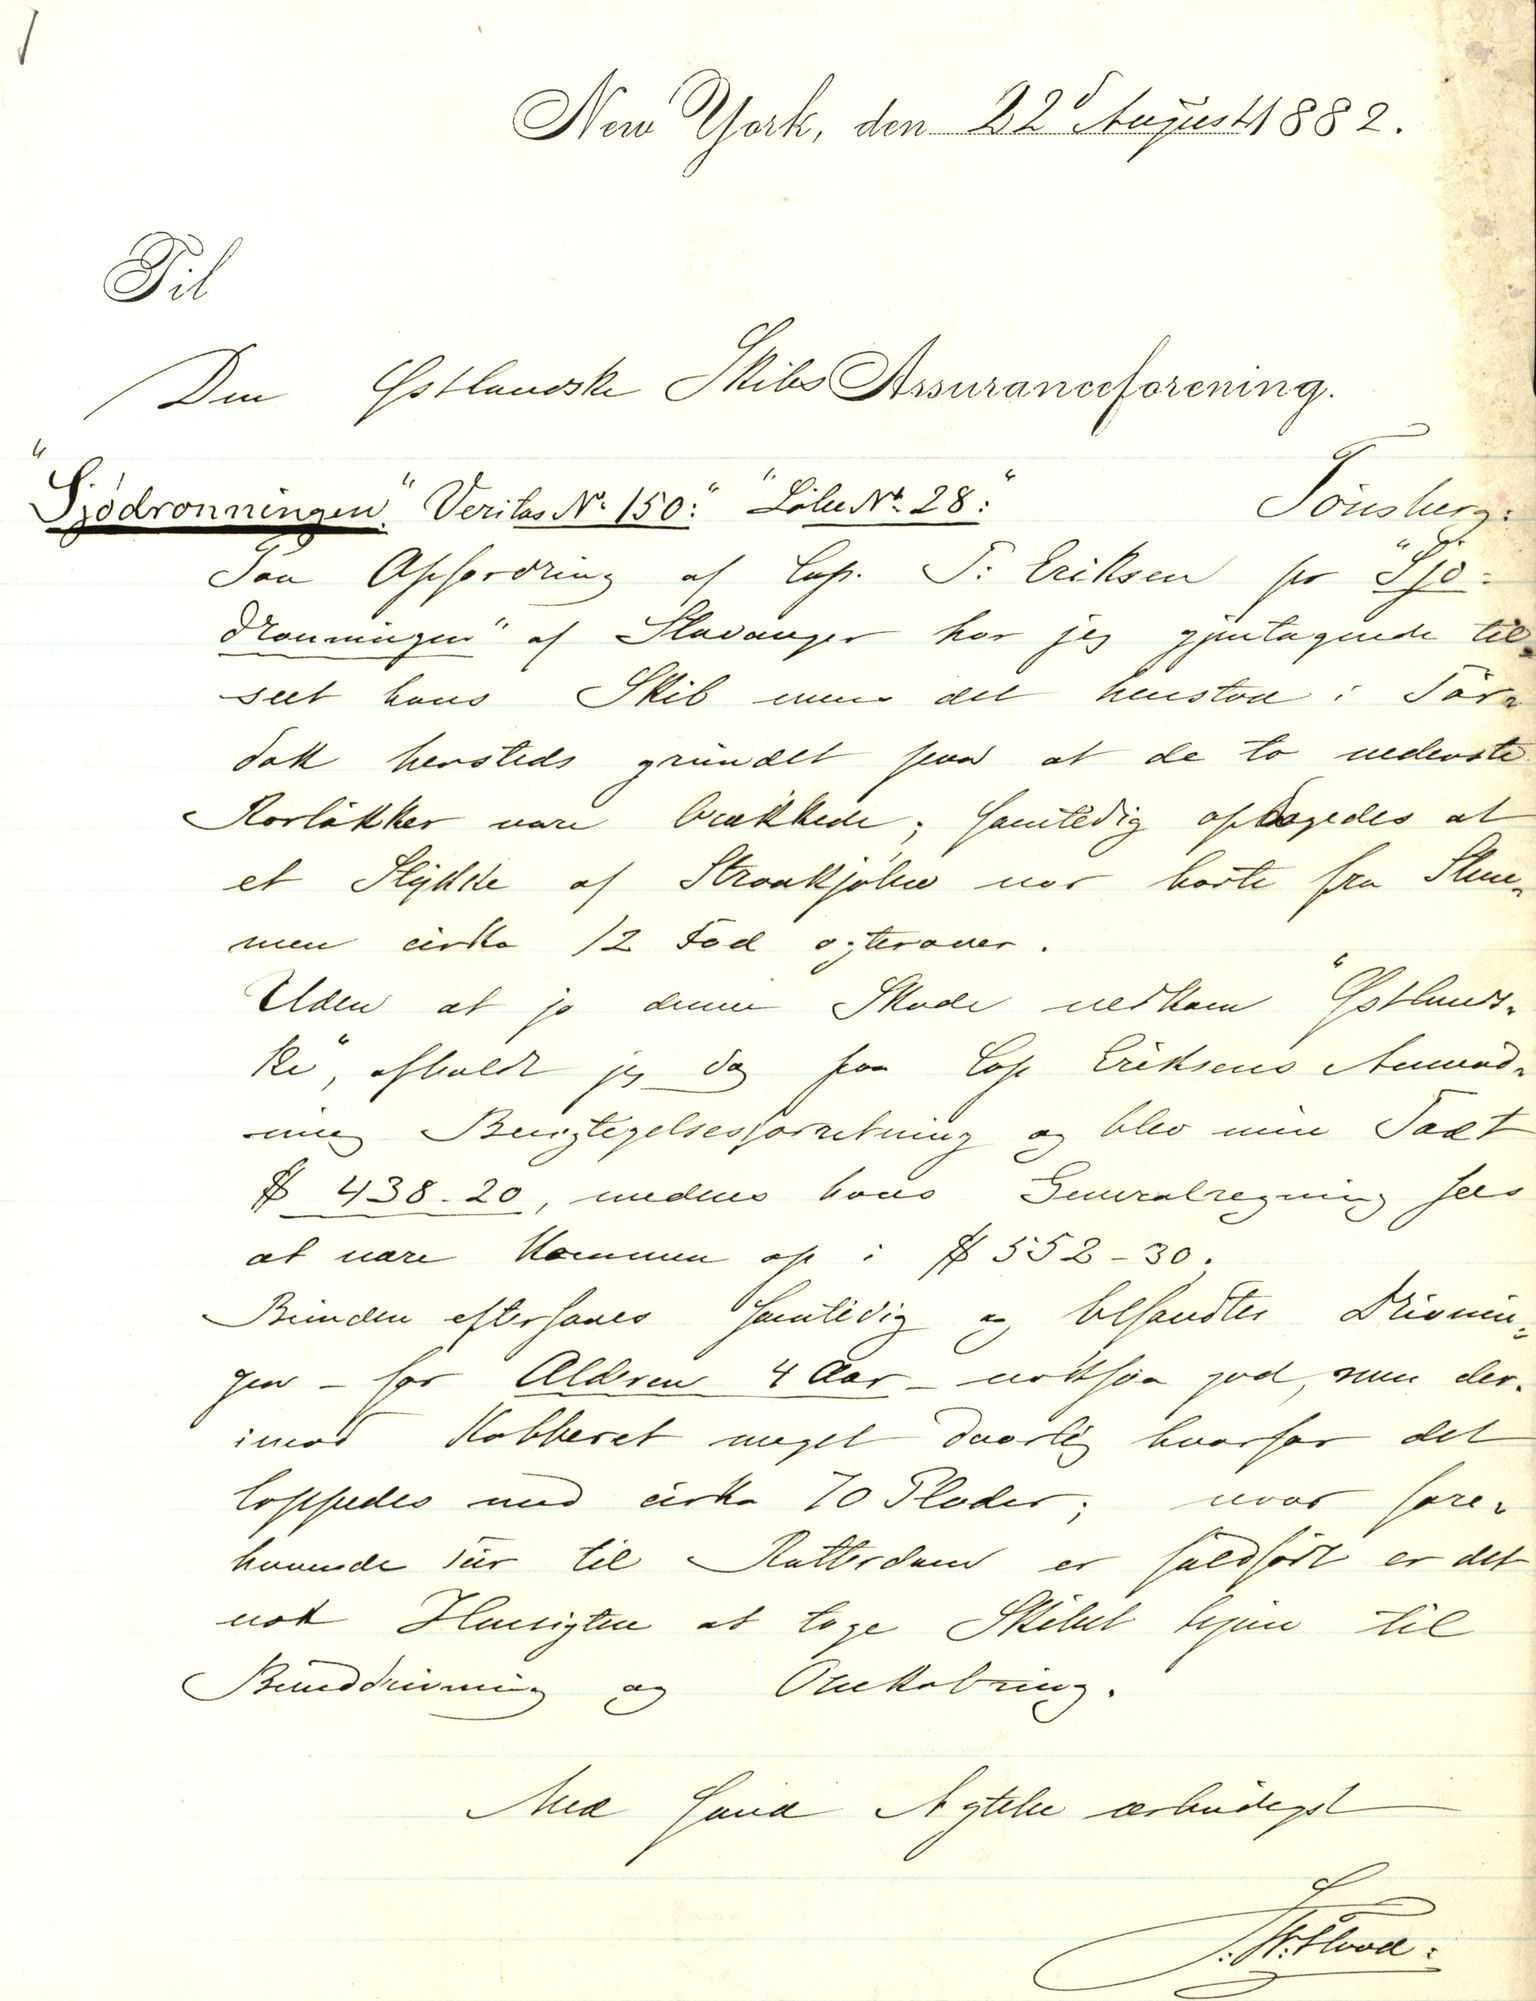 New York, den 22d August 1882.
Til
Den Østlandske Skibs Assuranceforening.
Tönsberg:
"Sjödronningen" Veritas No. 150:" "Löbe No. 28:"
Paa Opfordring af Cap. T: Eriksen pr "Sjö-
dronningen" af Stavanger har jeg gjentagende til-
seet hans Skib mens det henstod i Tör-
dok hersteds gründet paa at de to nederste
Rorløkker vare brækkede; samtidig opdagedes at
et Stÿkke af Straakjølen var borte fra Stæv-
nen cirka 12 Fod agterover.
Uden at jo denne Skade vedkom "Østlands-
ke", afholdt jeg dog paa Cap Eriksens Anmod-
ning Besigtigelsesforretning og blev min Taxt
$ 438-20, medens hans Generalregning sees
at være kommen op i $ 552-30.
Bünden eftersaaes samtidig og befandtes Drivnin-
gen - for Alderen 4 Aar - noksaa god, men der-
imod Kobberet meget daarlig hvorfor det
lappedes med cirka 70 Plader; naar fore-
havende Tür til Rotterdam er füldført er det
nok Hensigten at tage Skibet hjem til
Bünddrivning og Omkobring.
Med sand Agtelse ærbødigst
S. W. Flood: